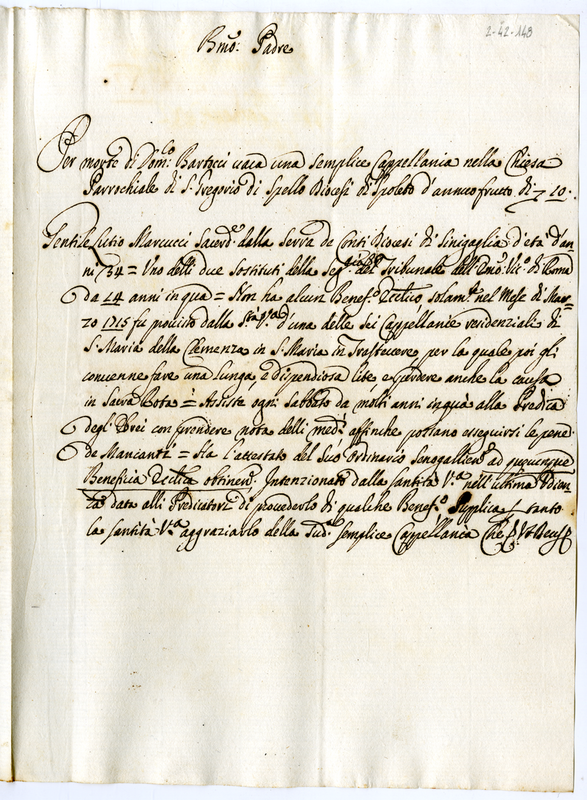 2-42-148
Bmo: Padre
Per morte di Domco Bartocci vaca una semplice Cappellania nella Chiesa
Parrochiale di S. Gregorio di Spello Diocesi di Spoleto d'annuo frutto di 10:
Gentile Marcucci Sacerde dalla Serra de Conti Diocesi di Sinigaglia d'età d'an
ni 34 = Uno delli due Sostituti della del Tribunale dell'Emo Vico di Roma
da 14 anni in qua = Non ha alcun Benefo solamte nel Mese di Mar-
zo 1715 fu provisto dalla Stà Va d'una delle sei Cappellanie residenziali di
S. Maria della Clemenza in S. Maria in Trastevere per la quale poi gli
convenne fare una lunga, e dispendiosa lite e perdere anche la causa
in Sacra Rota = Assiste ogni Sabbato da molti anni in quà alla Predica
degl'Ebrei con prendere nota delli medi affinche possano esseguirsi le pene
de Mancanti = Ha l'attestato del Suo Ordinario Senogallien: ad quecunque
Beneficia obtinend. Intenzionato dalla Santità Va nell'ultima Udien
za data alli Predicatori di provederlo di qualche Benefo Supplica tanto
la Santità Va aggraziarlo della Suda semplice Cappellania Che